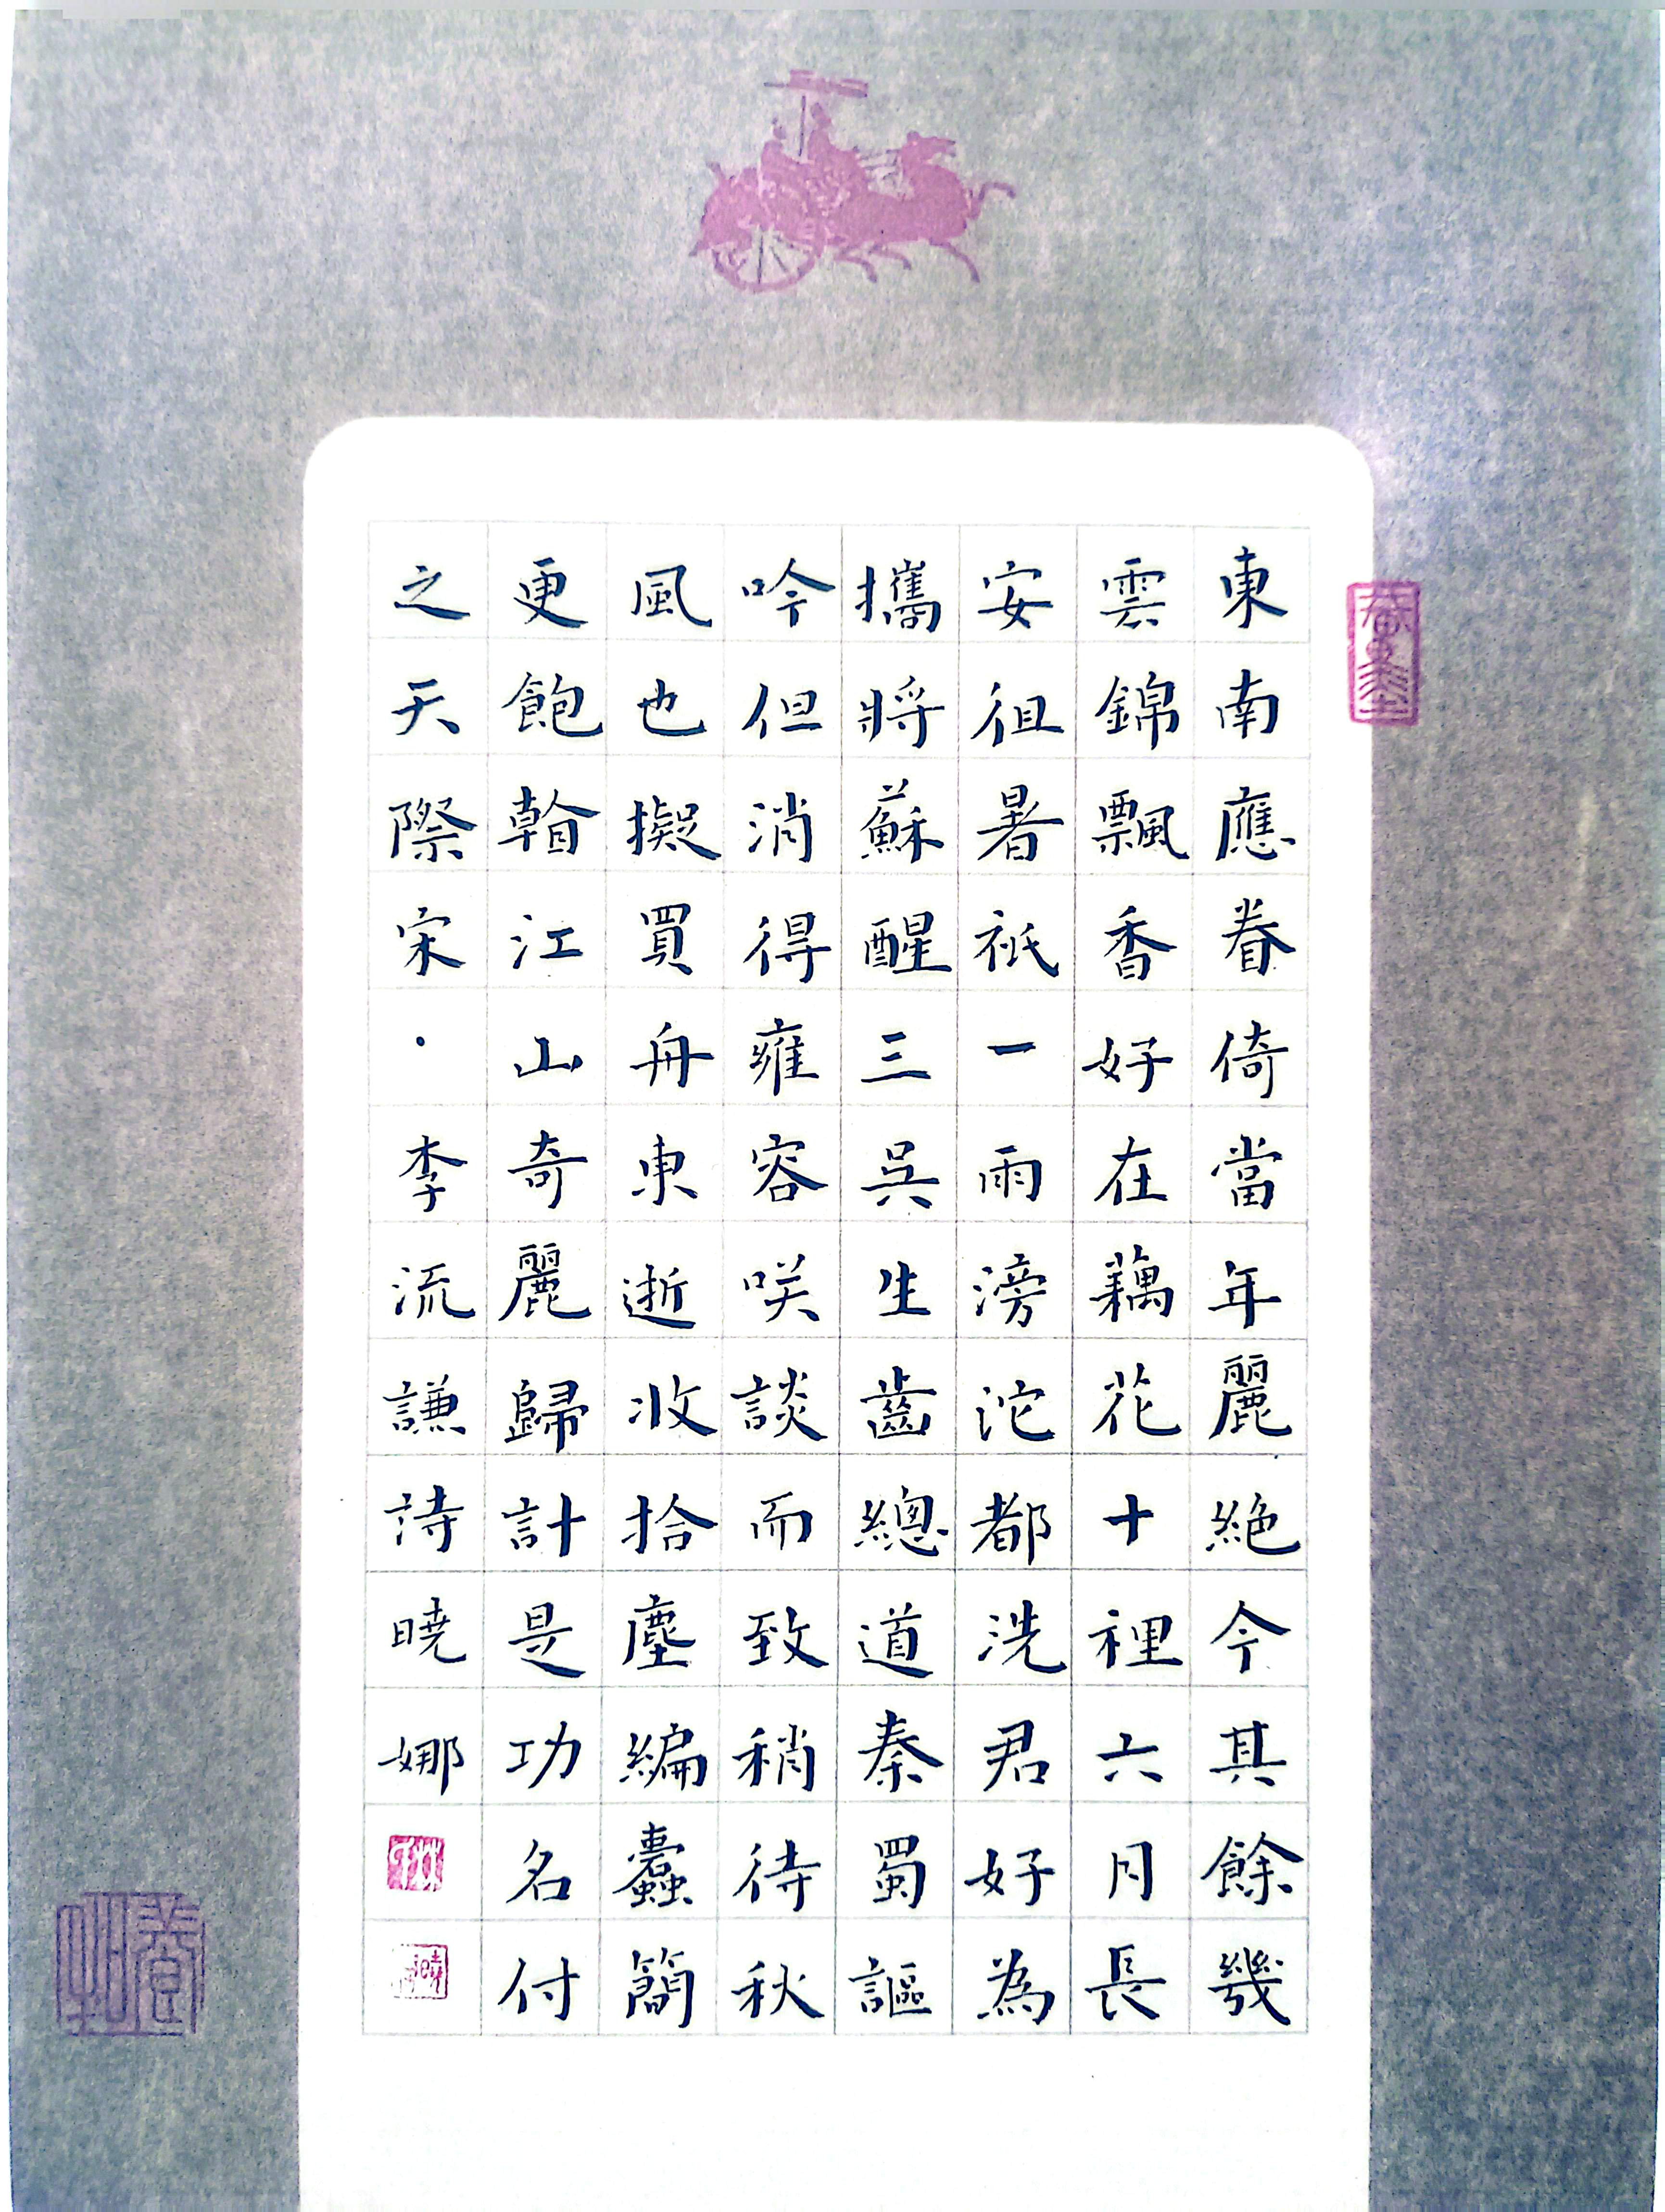 東南應眷倚當年麗絶今其餘幾
雲錦飄香好在藕花十裡六月長
安徂暑祇一雨滂沱都洗君好為
攜將蘇醒三吳生齒總道秦蜀謳
吟但消得雍容咲談而致稍待秋
風也擬買舟東逝收拾塵編蠹簡
更飽看江山奇麗歸計是功名付
之天際宋·李流謙詩曉娜